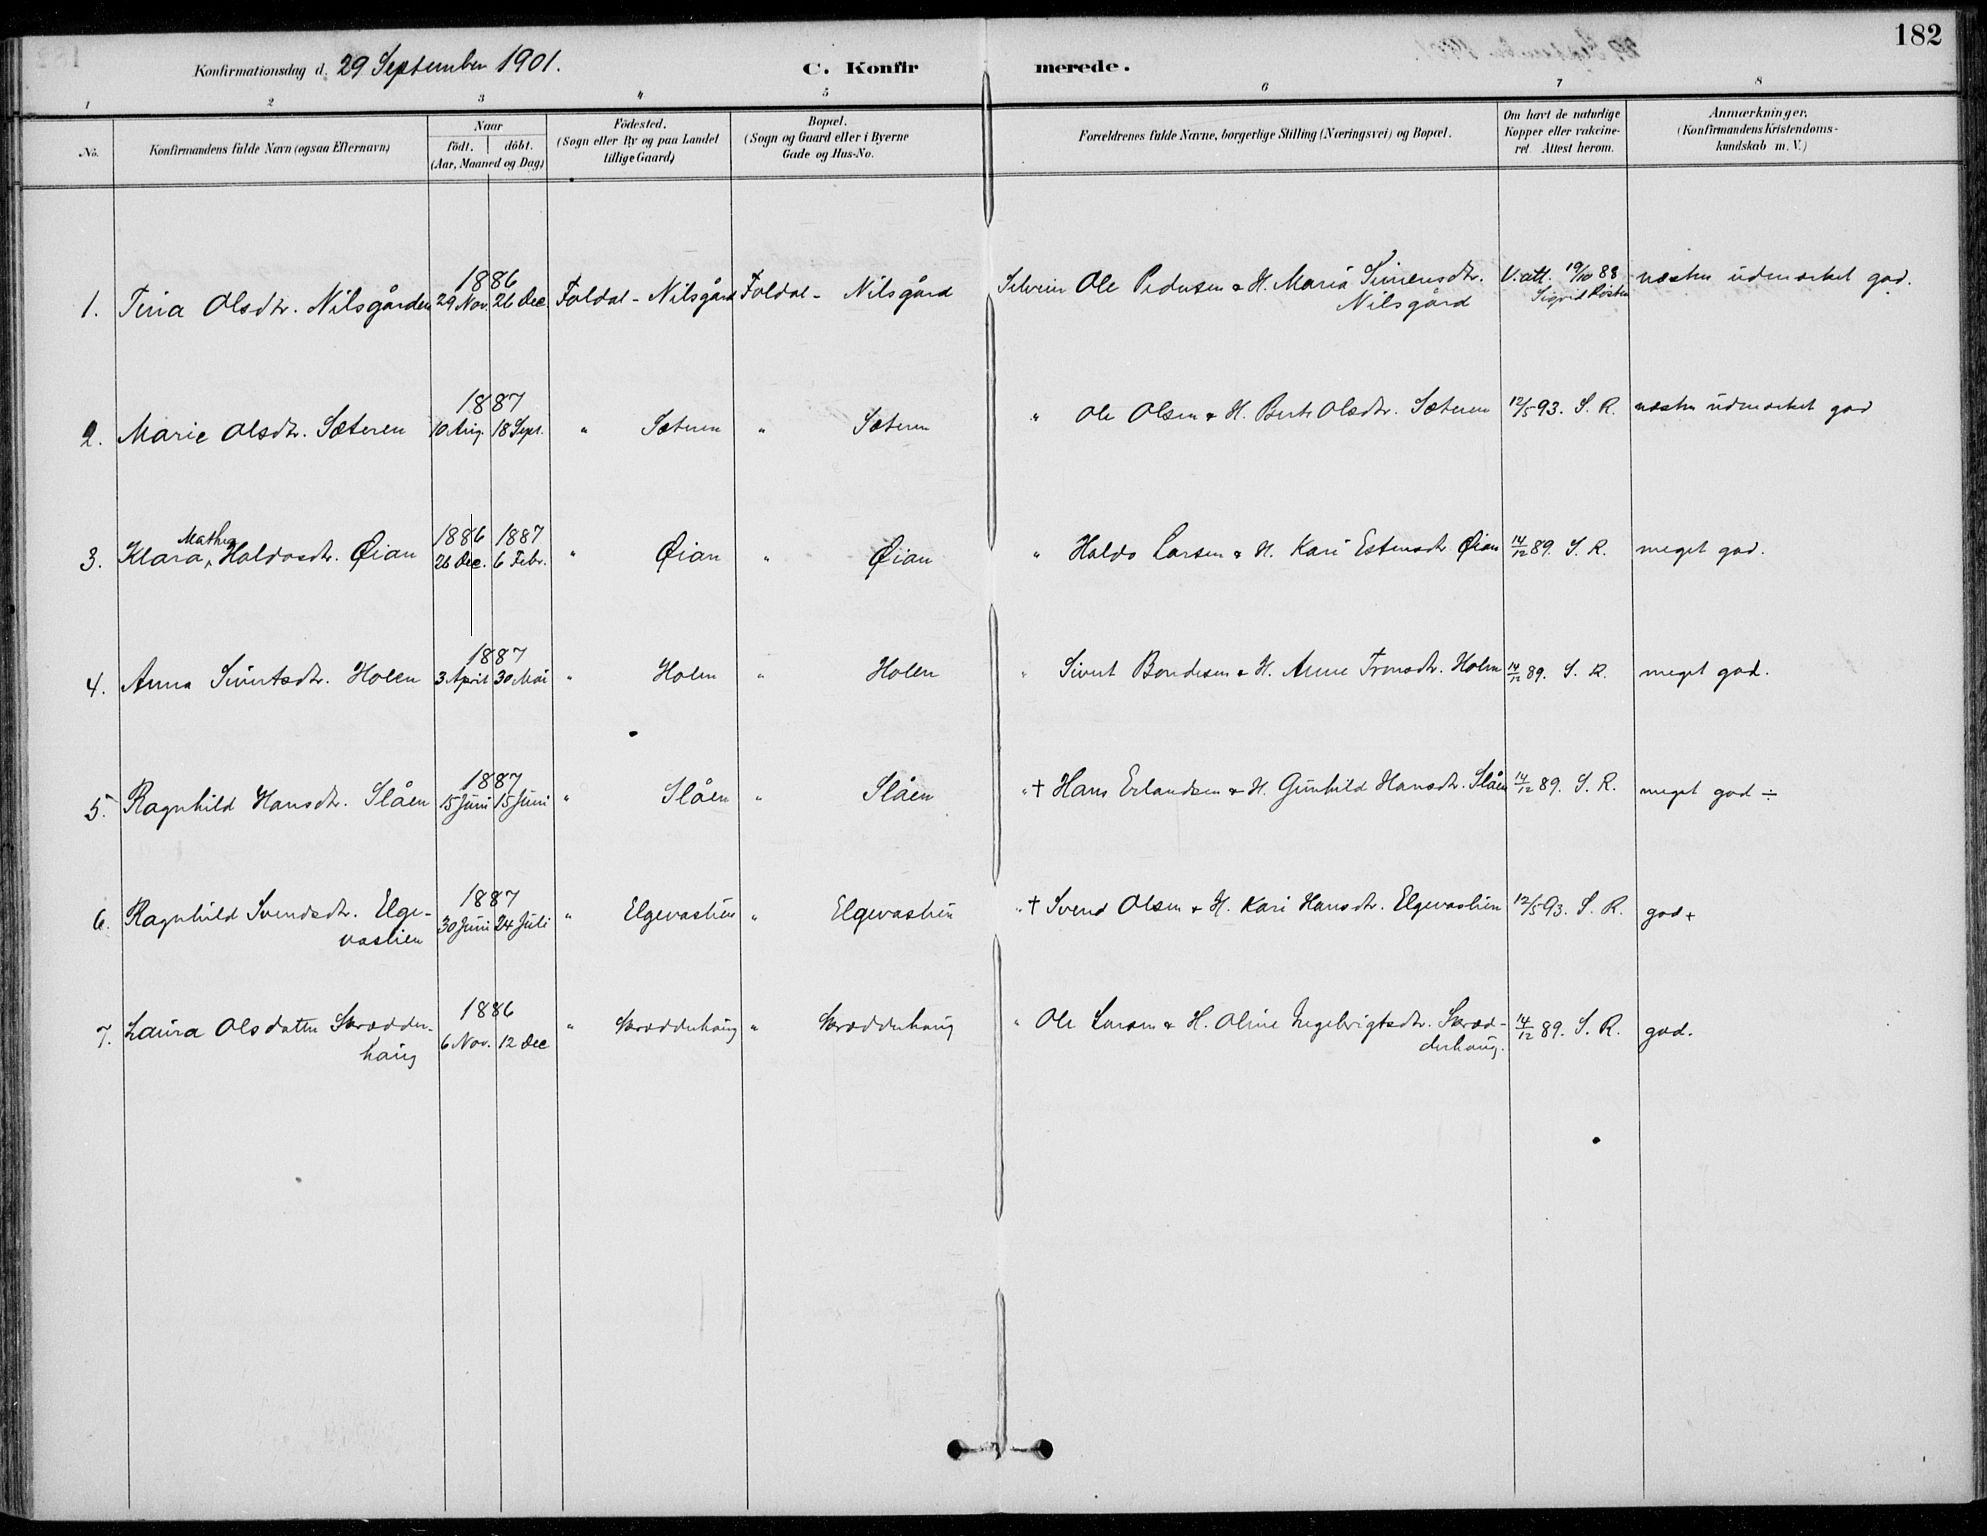 182
Konfirmationsdag d. 29 September 1901.
C. Konfirmerede.
1 2 3 4 5 6 7 8
No.
Konfirmandens fulde Navn (ogsaa Efternavn)
Naar
födt. döbt.
(Aar, Maaned og Dag)
Födested.
(Sogn eller By og paa Landet
tillige Gaard)
Bopæl.
(Sogn og Gaard eller i Byerne
Gade og Hus-No.
Forældrenes fulde Navne, borgerlige Stilling (Næringsvei) og Bopæl.
Om havt de naturlige
Kopper eller vakcine-
ret. Attest herom.
Anmærkninger.
(Konfirmandens Kristendoms-
kundskab m. V.)
1886
1. Tina Olsdtr. Nilsgården 29 Nov. 26 Dec Foldal - Nilsgård Foldal - Nilsgård Selveier Ole Pedersen & H. Maria Simensdtr. V. att. 19/10 88 næsten udmærket god.
Nilsgård Sigrid Rösten
1887
2. Marie Olsdtr. Sæteren 10 Aug. 18 Sept. " Sæteren " Sæteren " Ole Olsen & H. Berit Olsdtr. Sæteren 12/5 93. S. R. næsten udmærket god
Mathea 1886 1887
3. Klara Haldosdtr. Øian 26 Dec. 6 Febr. " Øian " Øian " Haldo Larsen & H. Kari Estensdtr Øian 14/12 89. S. R. meget god.
1887
4. Anna Sivertsdtr. Holen 3 April 30 Mai " Holen " Holen " Sivert Bondesen & H. Anne Tronsdtr. Holen 14/12 89. S. R. meget god.
1887
5. Ragnhild Hansdtr. Slåen 15 Juni 15 Juni " Slåen " Slåen " † Hans Erlandsen & H. Gunhild Hansdtr. Slåen 14/12 89. S. R. meget god ÷
1887
6. Ragnhild Svendsdtr. Elge- 30 Juni 24 Juli " Elgevaslien " Elgevaslien " † Svend Olsen & H. Kari Hansdtr. Elgevaslien 12/5 93. S. R. god +
vaslien
1886
7. Laura Olsdatter Skrædder- 6 Nov. 12 Dec " Skrædderhaug " Skrædderhaug " Ole Larsen & H. Oline Ingebrigtsdtr. Skræd- 14/12 89. S. R. god.
haug derhaug.